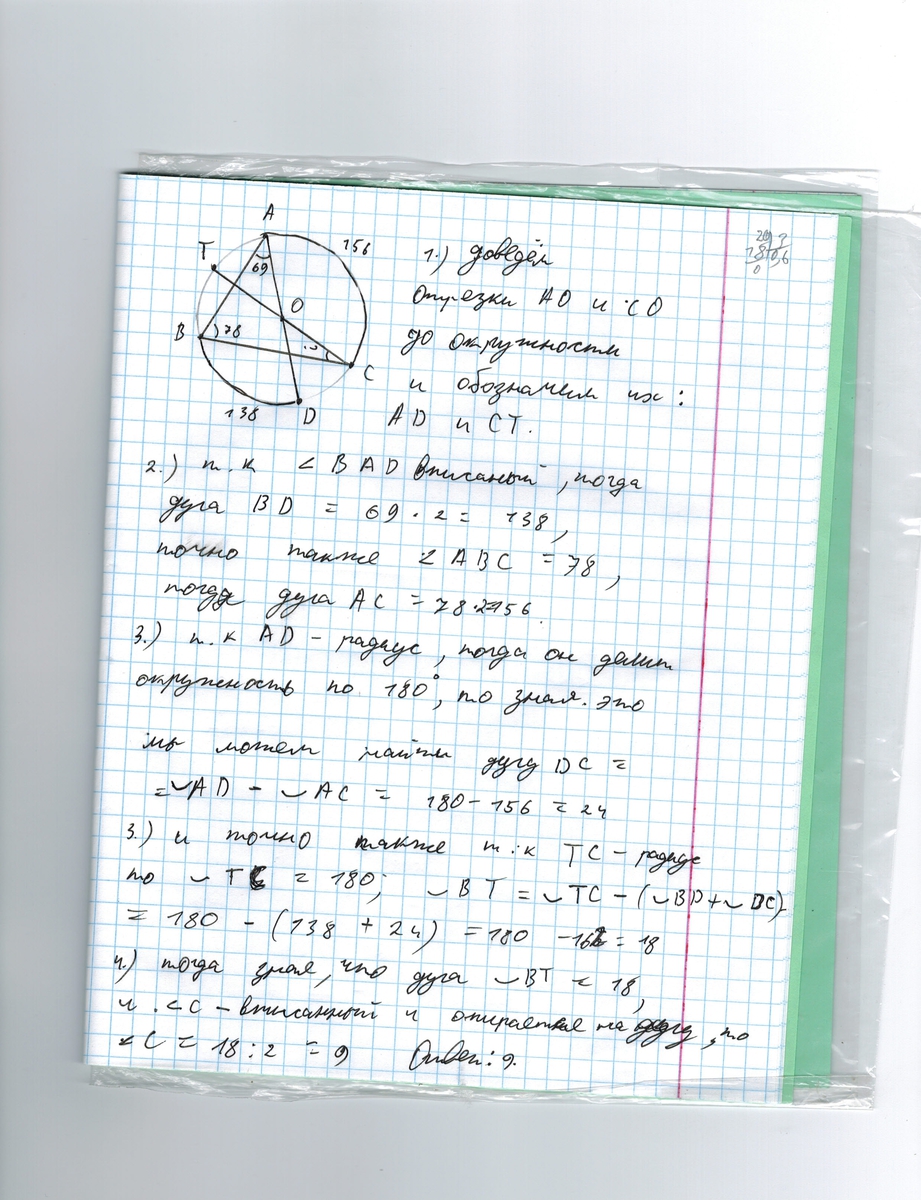 A
156
T
69
O
B
78
C
138
D
1.) доведём
отрезки АО и СО
до окружности
и обозначем их:
AD и СТ.
2.) т.к < BAD вписаный, тогда
дуга BD = 69 · 2 = 138,
точно также < ABC = 78,
тогда дуга AC = 78·2=156.
3.) т.к AD – радиус, тогда он делит
окружность по 180°, то зная это
мы можем найти дугу DC =
= ◡AD – ◡AC = 180 – 156 = 24
3.) и точно также т.к TC – радиус
то ◡TC = 180; ◡BT = ◡TC – (◡BD + ◡DC)
= 180 – (138 + 24) = 180 – 162 = 18
4.) тогда зная, что дуга ◡BT = 18,
и <C – вписанный и опирается на дугу, то
<C = 18 : 2 = 9 Ответ: 9.